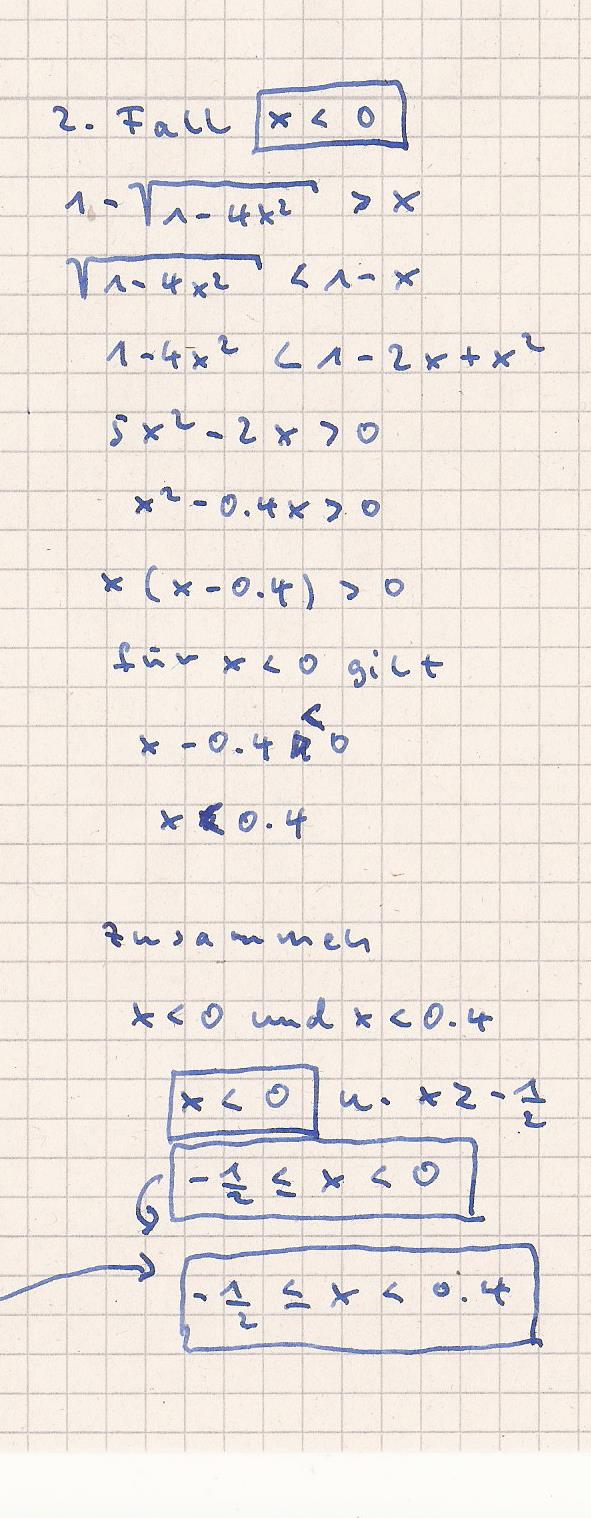 2. Fall x < 0
1 - √1 - 4x² > x
√1 - 4x² < 1 - x
1 - 4x² < 1 - 2x + x²
5x² - 2x > 0
x² - 0.4x > 0
x (x - 0.4) > 0
für x < 0 gilt
x - 0.4 < 0
x < 0.4
Zusammen
x < 0 und x < 0.4
x < 0 u. x ≥ - 1/2
- 1/2 ≤ x < 0
- 1/2 ≤ x < 0.4